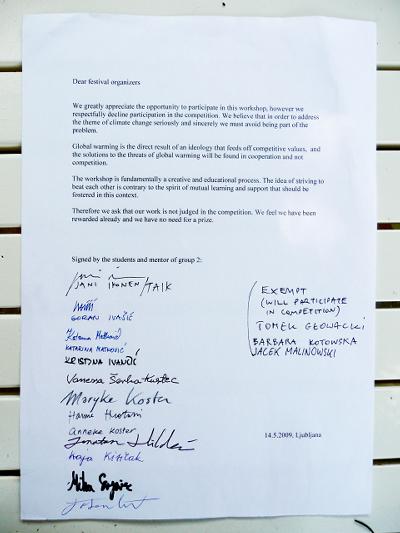 Dear festival organizers
We greatly appreciate the opportunity to participate in this workshop, however we
respectfully decline participation in the competition. We believe that in order to address
the theme of climate change seriously and sincerely we must avoid being part of the
problem.
Global warming is the direct result of an ideology that feeds off competitive values, and
the solutions to the threats of global warming will be found in cooperation and not
competition.
The workshop is fundamentally a creative and educational process. The idea of striving to
beat each other is contrary to the spirit of mutual learning and support that should be
fostered in this context.
Therefore we ask that our work is not judged in the competition. We feel we have been
rewarded already and we have no need for a prize.
Signed by the students and mentor of group 2:
JANI IKONEN/TAIK
GORAN IVAŠIĆ
KATARINA MATKOVIĆ
KRISTINA IVANČIĆ
Vanessa
Maryke Koster
Hanni
Anneke Koster
Jonatan
EXEMPT
(WILL PARTICIPATE
IN COMPETITION)
TOMEK GŁOWACKI
BARBARA KOTOWSKA
JACEK MALINOWSKI
14.5.2009, Ljubljana